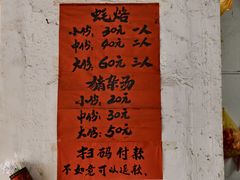 蚝烙
小份 30元 一人
中份 40元 二人
大份 60元 三人
猪杂汤
小份 20元
中份 30元
大份 50元
扫码付款
不如意可以退款.